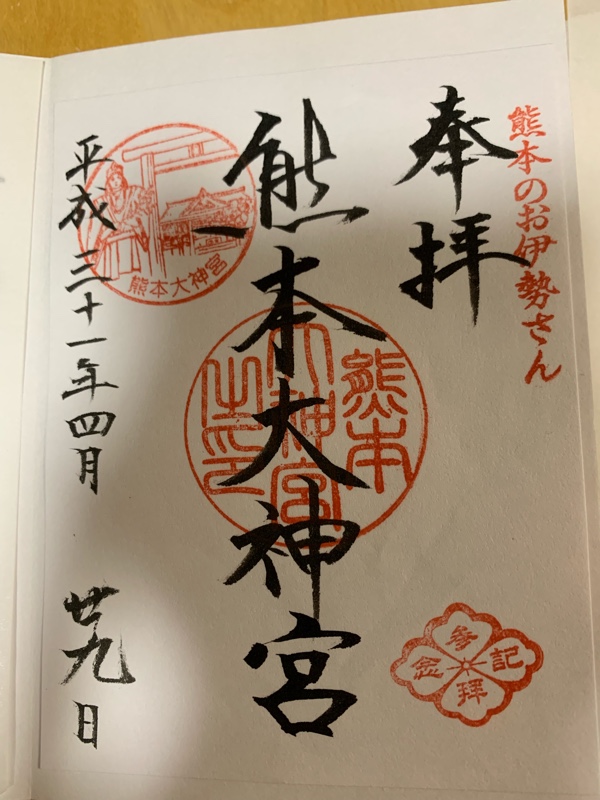 熊本のお伊勢さん
奉拝
熊本大神宮
熊本
大神宮
之印
熊本大神宮
平成三十一年四月廿九日
参拝記念